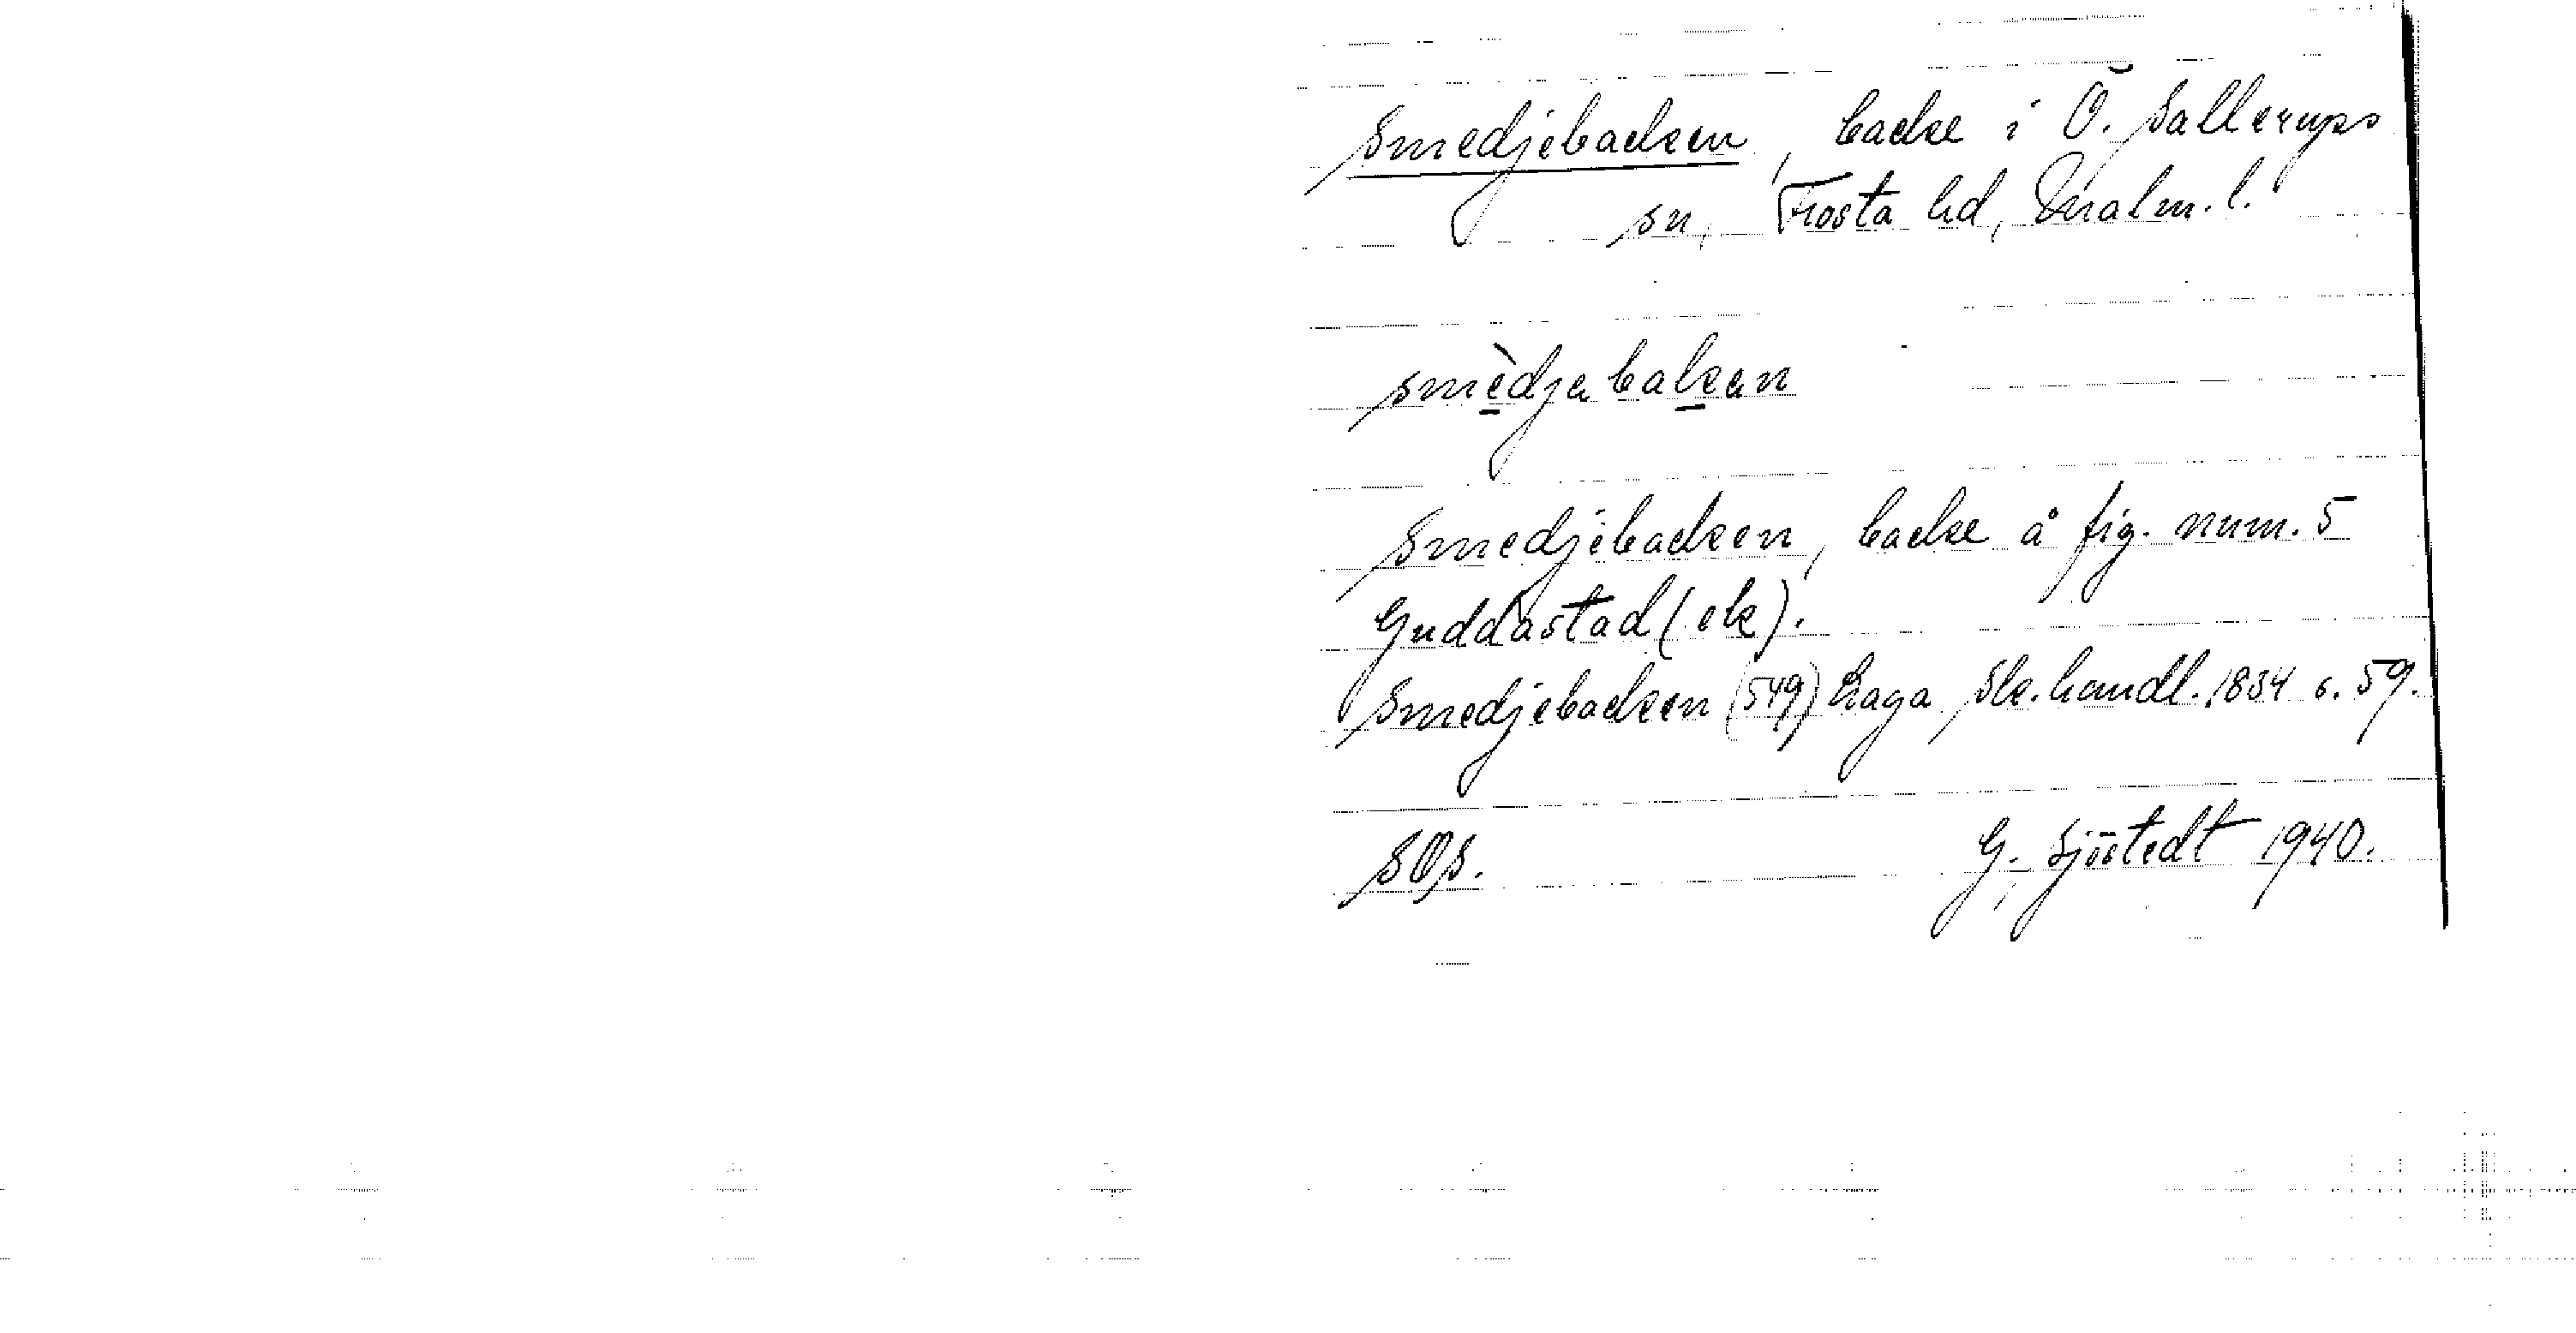 Smedjebacken, backe i Ö. Sallerups
sn, Frosta hd, Malm. l.
smèdjabakan
Smedjebacken, backe å fig. num. 5
Guddastad (ek).
Smedjebacken (549) haga Sk. handl. 1834 s. 59.
SOS. G. Sjöstedt 1940.